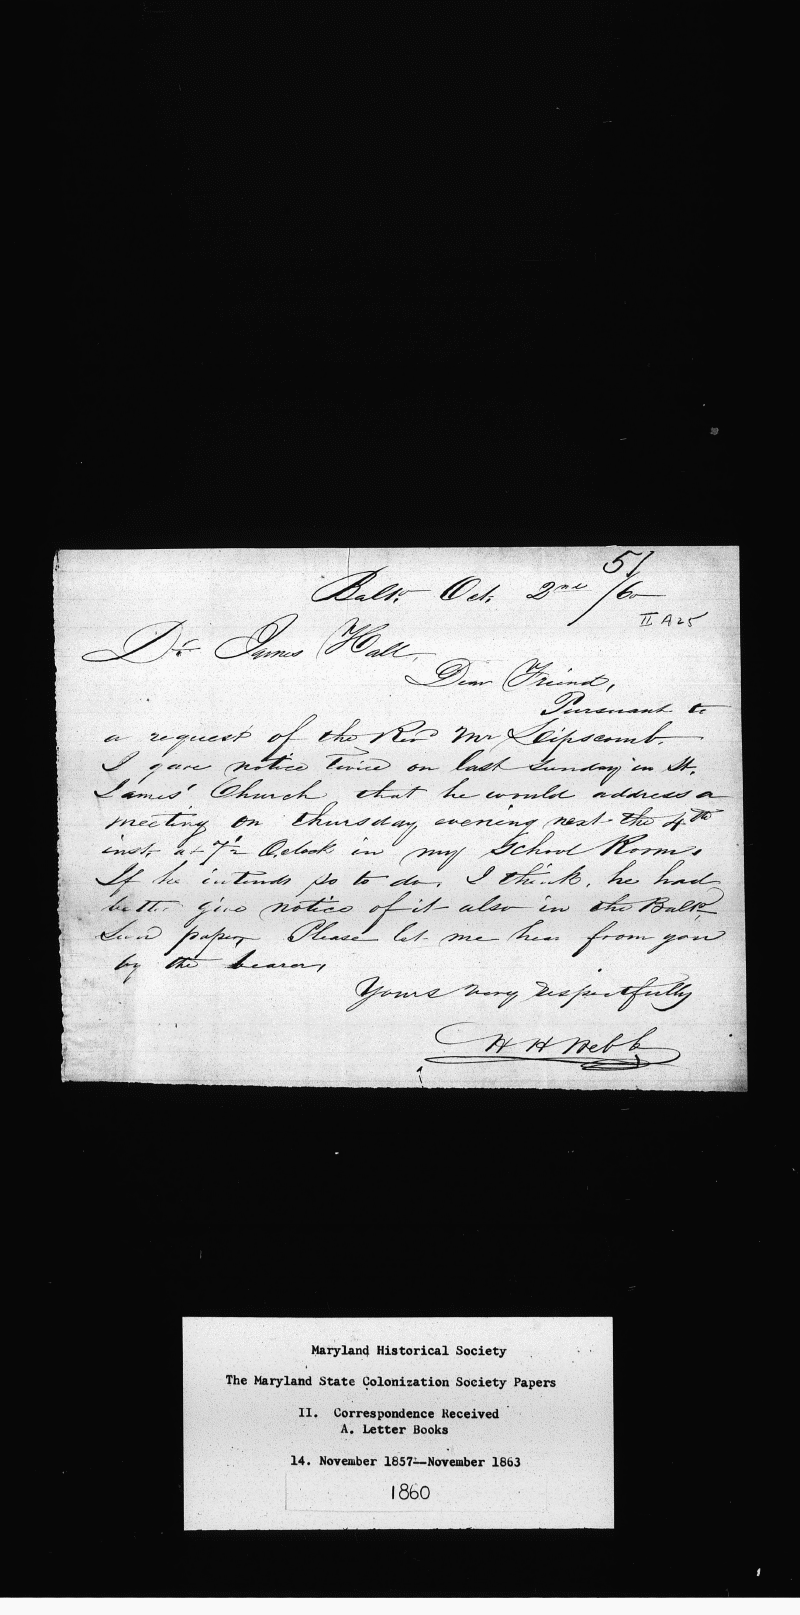 51
Balto. Oct. 2nd /60
II A 25
Dr. James Hall,
Dear Friend,
Pursuant to
a request of the Revd Mr Lipscomb.
I gave notice twice on last Sunday in St.
James' Church that he would address a
meeting on thursday evening next the 4th
inst. at 7½ O,clock in my School Room.
If he intends so to do, I think, he had
better give notice of it also in the Balto.
Sun paper, Please let me hear from you
by the bearer,
Yours very respectfully
H H Webb
Maryland Historical Society
The Maryland State Colonization Society Papers
II. Correspondence Received
A. Letter Books
14. November 1857--November 1863
1860